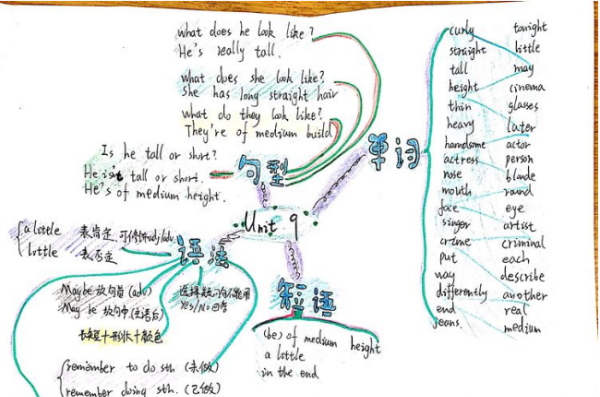 what does he look like?
He's really tall.
what does she look like?
She has long straight hair
What do they look like?
They're of medium build
Is he tall or short?
He isn't tall or short.
He's of medium height.
句型
单词
Unit 9
语法
短语
curly tonight
straight little
tall may
height cinema
thin glasses
heavy later
handsome actor
actress person
nose blonde
mouth round
face eye
singer artist
crime criminal
put each
way describe
differently another
end real
jeans medium
a little 表肯定 可修饰adj/adv
little 表否定
Maybe 放句首 (adv)
May be 放句中 (主语后)
长短+形状+颜色
选择疑问句不能用
Yes/No回答
remember to do sth. (未做)
remember doing sth. (已做)
(be) of medium height
a little
in the end